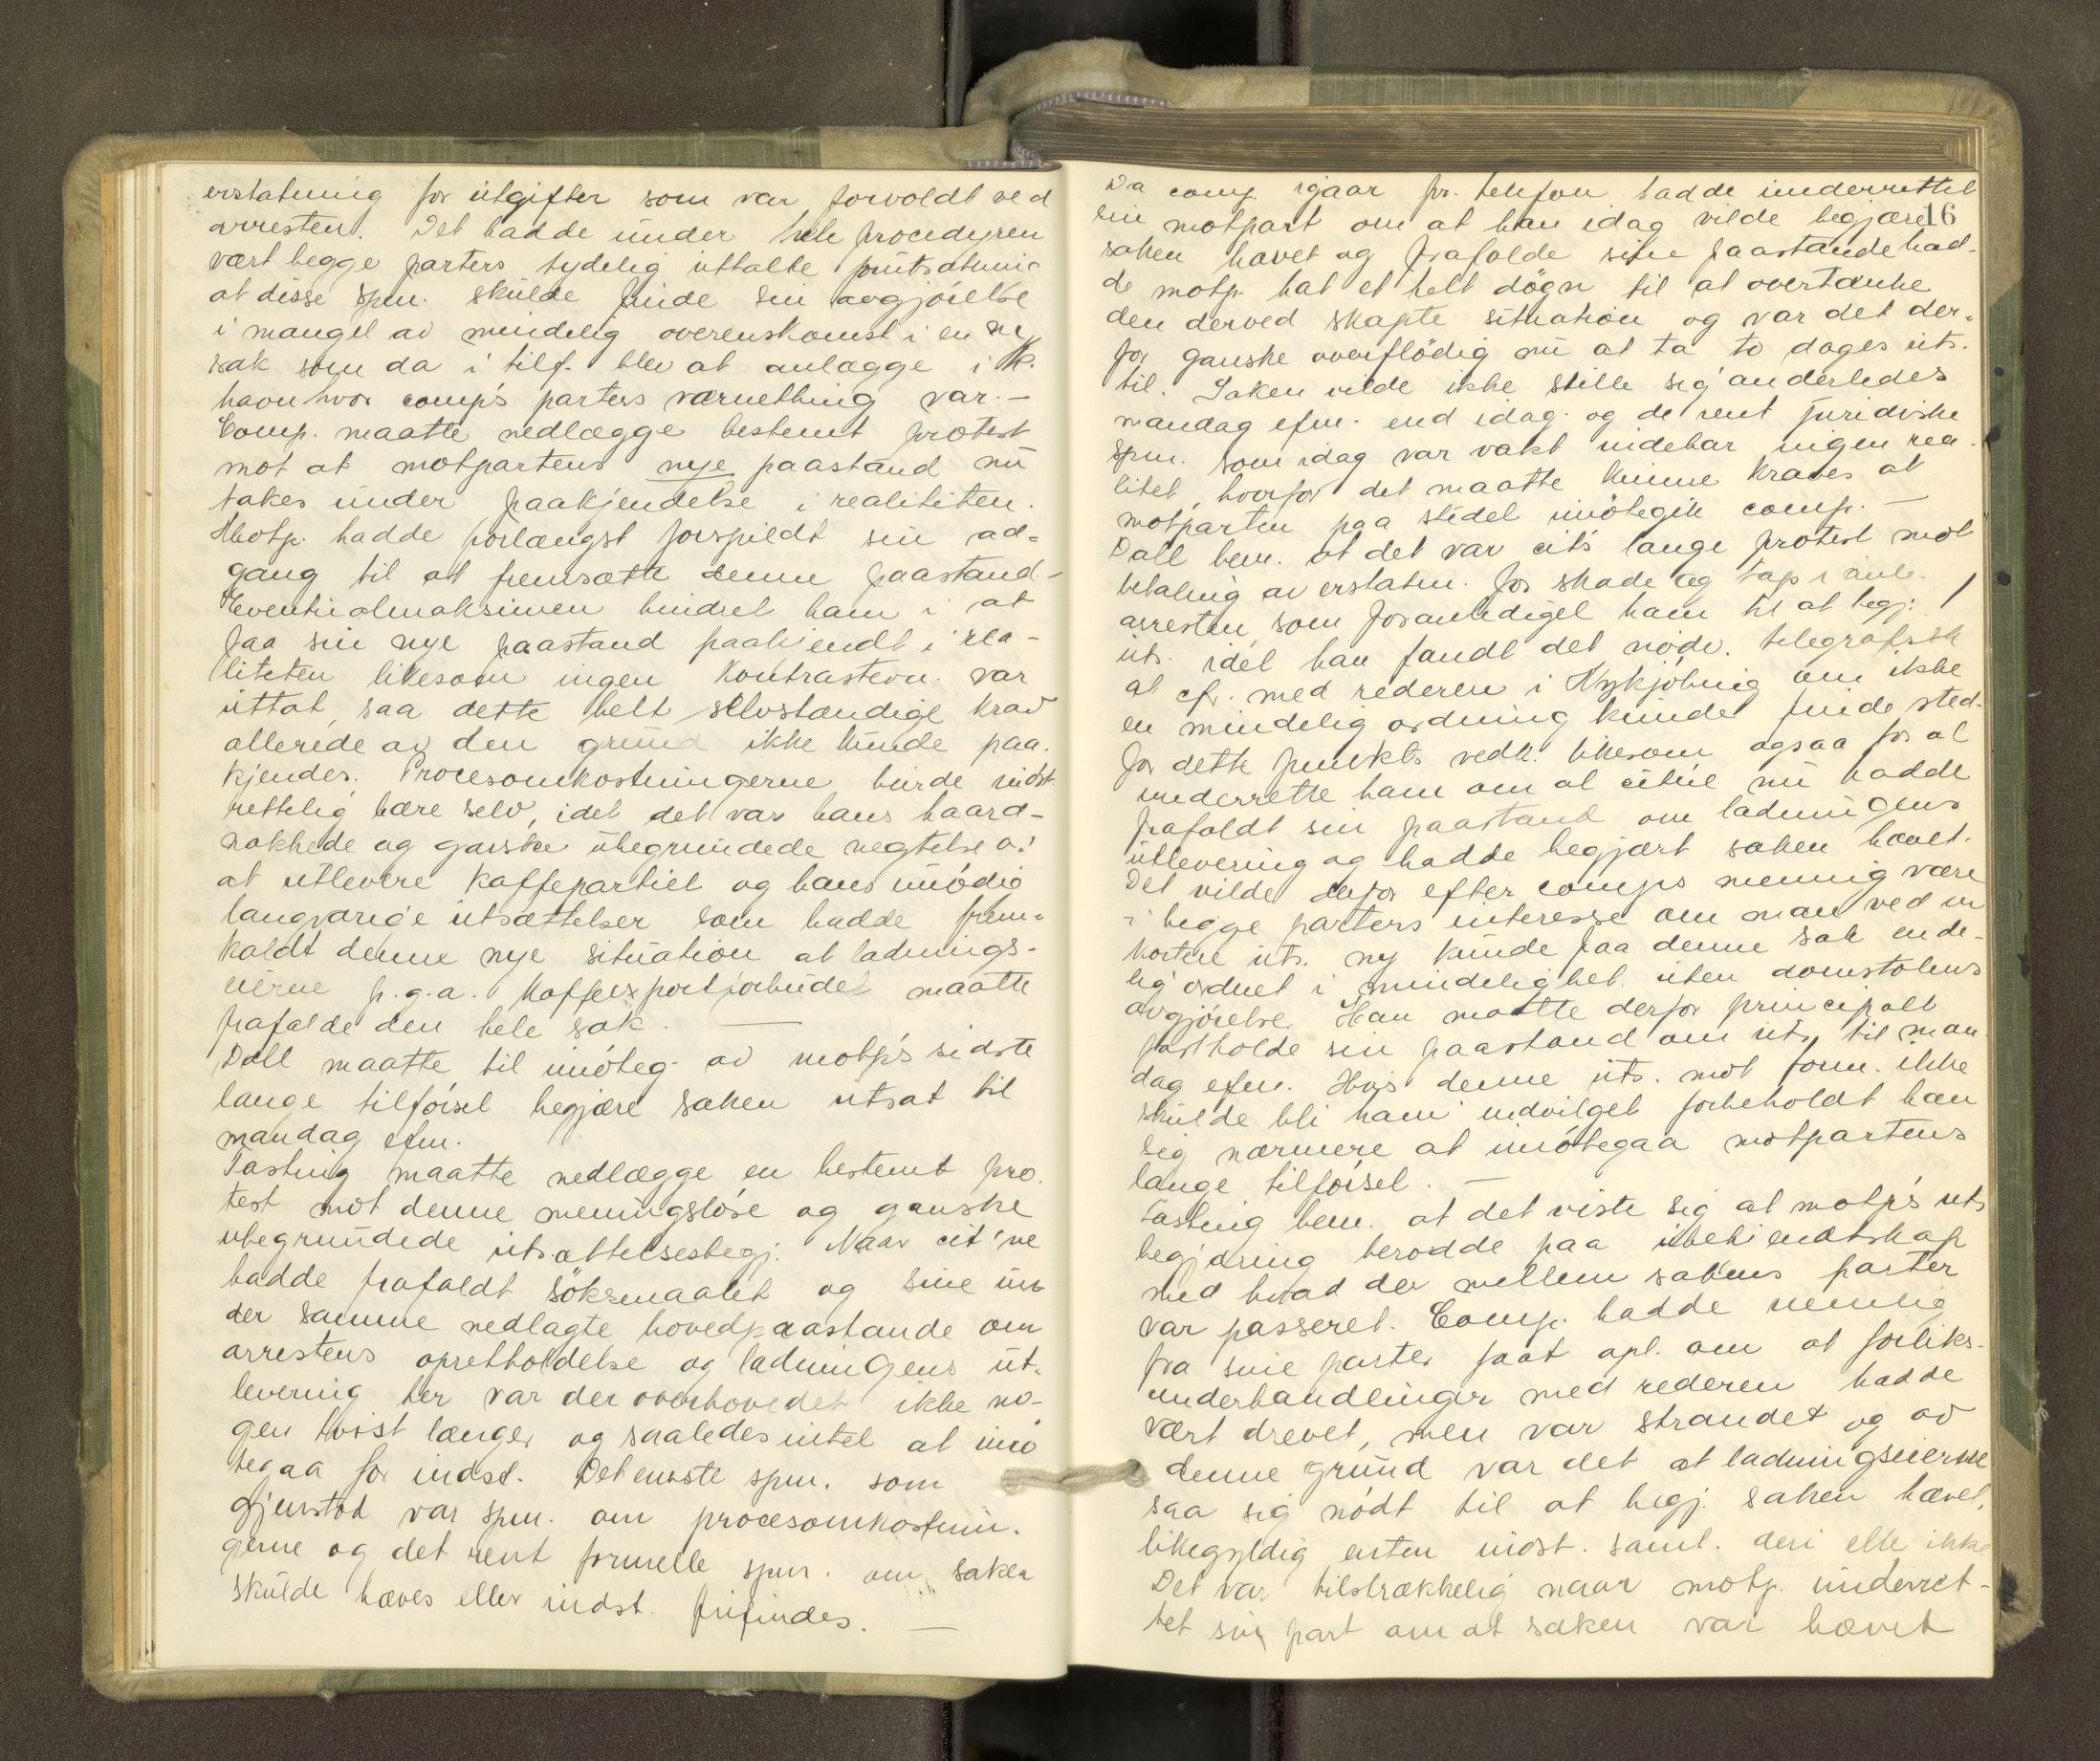 erstatning for utgifter som var forvoldt ved
arresten. Det hadde under hele procedyren
vært begge parters tydelig uttalte forutsætning
at disse spm. skulde finde sin avgjörelse
i mangel av mindelig overenskomst i en ny
sak som da i tilf. blev at anlægge i K.
havn hvor comp's parters værnething var. —
Comp. maatte nedlægge bestemt protest
mot at motpartens nye paastand nu
takes under paakjendelse i realiteten.
Motp. hadde forlængst forspildt sin ad-
gang til at fremsætte denne paastand. —
Eventualmaksimen hindret ham i at
faa sin nye paastand paakjendt i rea-
liteten likesom ingen kontrastevn. var
uttat, saa dette helt selvstændige krav
allerede av den grund ikke kunde paa-
kjendes. Procesomkostningerne burde indst.
rettelig bære selv, idet det var hans haard-
nakkede og ganske ubegrundede negtelse av
at utlevere kaffepartiet og hans unödig
langvarige utsættelser som hadde frem-
kaldt denne nye situation at ladnings-
eierne p.g.a. kaffeexportforbudet maatte
frafalde den hele sak. —
Dall maatte til imöteg. av motp's sidste
lange tilförsel begjære saken utsat til
mandag efm.
Tasting maatte nedlægge en bestemt pro-
test mot denne meningslöse og ganske
ubegrundede utsættelsesbegj. Naar cit'ne
hadde frafaldt söksmaalet og sine un-
der samme nedlagte hovedpaastande om
arrestens opretholdelse og ladningens ut-
levering her var der overhovedet ikke no-
gen tvist længer og saaledes intet at imö
tegaa for indst. Det eneste spm. som
gjenstod var spm. om procesomkostnin-
gerne og det rent formelle spm. om saken
skulde hæves eller indst. frifindes. —
16
Da comp. igaar pr. telefon hadde underrettet
sin motpart om at han idag vilde begjære
saken hævet og frafalde sine paastande had-
de motp. hat et helt dögn til at overtænke
den derved skapte situation og var det der-
for ganske overflödig nu at ta to dages uts.
til. Saken vilde ikke stille sig anderledes
mandag efm. end idag og de rent juridiske
spm. som idag var vakt indebar ingen rea-
litet, hvorfor det maatte kunne kræves at
motparten paa stedet imötegik comp. —
Dall bem. at det var cit's lange protest mot
betaling av erstatn. for skade og tap i anl.
arresten, som foranlediget ham til at begj.
uts. idet han fandt det nödv. telegrafisk
at cfr. med rederen i Nykjöbing om ikke
en mindelig ordning kunde finde sted
for dette punkts vedk. likesom ogsaa for at
underrette ham om at cit'ne nu hadde
frafaldt sin paastand om ladningens
utlevering og hadde begjært saken hævet.
Det vilde derfor efter comps mening være
i begge parters interesse om man ved en
kortere uts. ny kunde faa denne sak ende-
lig ordnet i mindelighet uten domstolens
avgjörelse. Han maatte derfor principalt
fastholde sin paastand om uts. til man-
dag efm. Hvis denne uts. mot form. ikke
skulde bli ham indvilget forbeholdt han
sig nærmere at imötegaa motpartens
lange tilförsel. —
Tasting bem. at det viste sig at motp's uts
begjæring berodde paa ubekjendtskap
med hvad der mellem sakens parter
var passeret. Comp. hadde nemlig
fra sine parter faat opl. om at forliks-
underhandlinger med rederen hadde
vært drevet, men var strandet og av
denne grund var det at ladningseierne
saa sig nödt til at begj. saken hævet,
likegyldig enten indst. saml. deri elle ikke
Det var tilstrækkelig naar motp. underret-
tet sin part om at saken var hævet